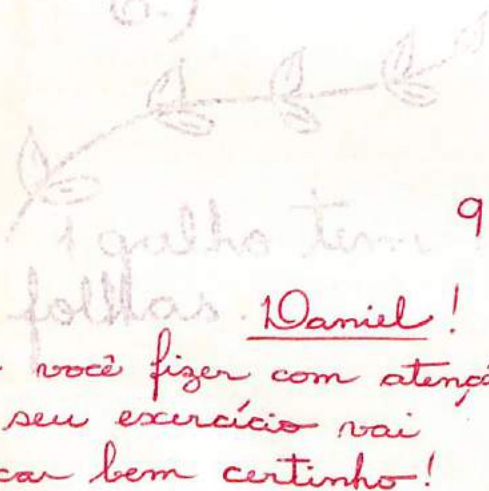 6.)
9
1 galho tem
folhas.
Daniel!
você fizer com atenç
seu exercício vai
car bem certinho!